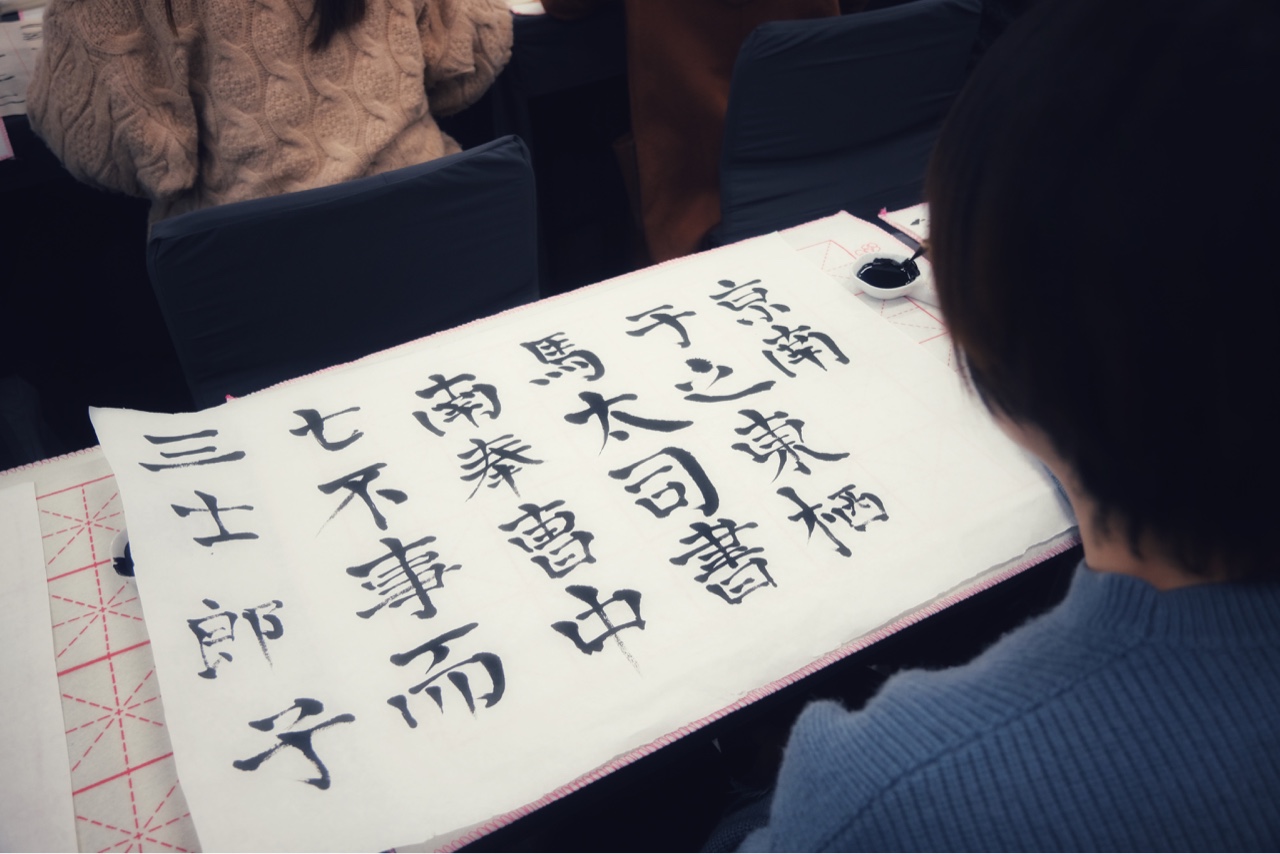 京南
于之東栖
馬太司書
南奉曹中
七不事而
三士郎子